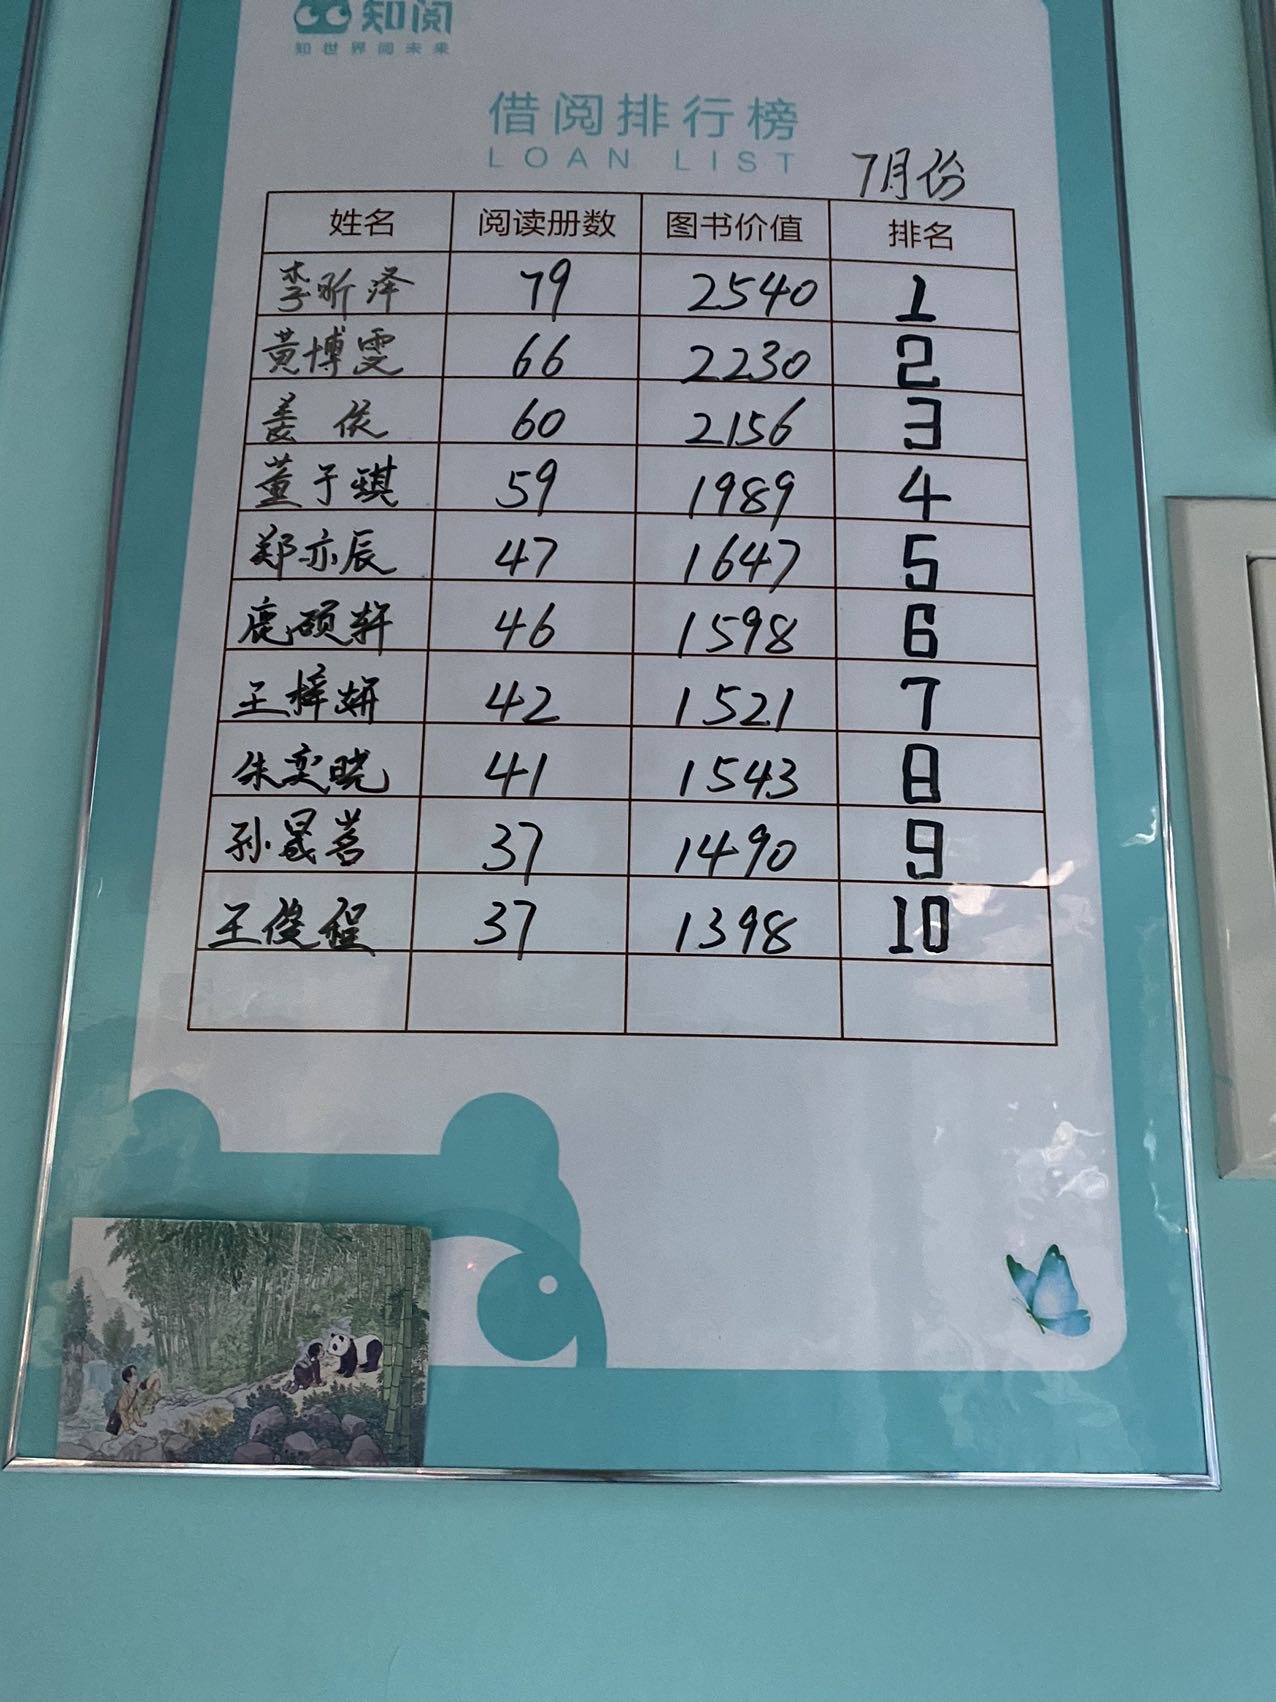 知阅
知世界阅未来
借阅排行榜
LOAN LIST
7月份
姓名 阅读册数 图书价值 排名
李昕泽 79 2540 1
黄博雯 66 2230 2
姜依 60 2156 3
董于琪 59 1989 4
郑亦辰 47 1647 5
鹿硕轩 46 1598 6
王梓妍 42 1521 7
朱奕晓 41 1543 8
孙晟茗 37 1490 9
王俊程 37 1398 10